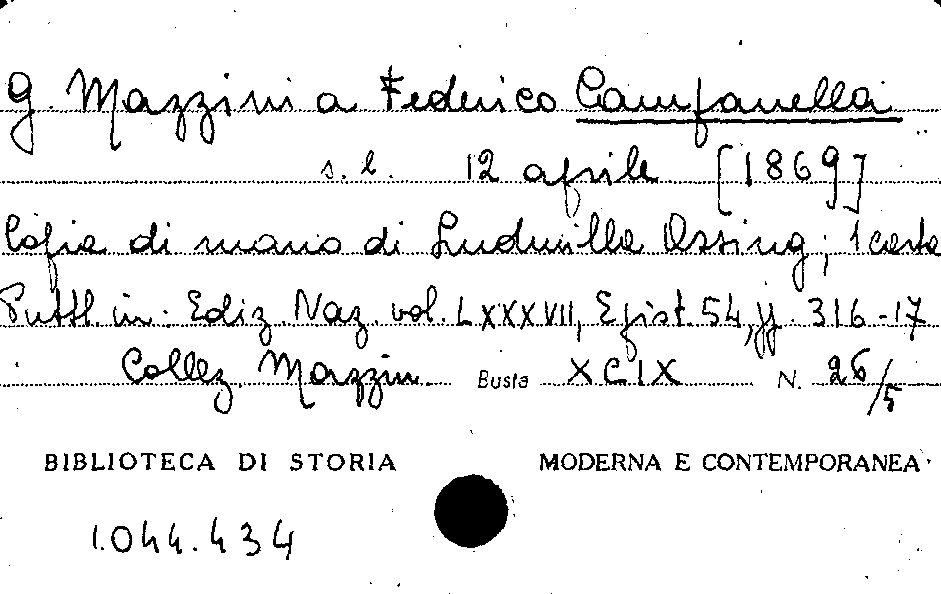 G. Mazzini a Federico Campanella
s. l. 12 aprile [1869]
Copia di mano di Ludmilla Assing; 1 carta
Pubbl. in: Ediz. Naz. vol. LXXXVII, Epist. 54, pp. 316-17
Collez. Mazzin. Busta XCIX N. 26/5
BIBLIOTECA DI STORIA MODERNA E CONTEMPORANEA
1.044.434